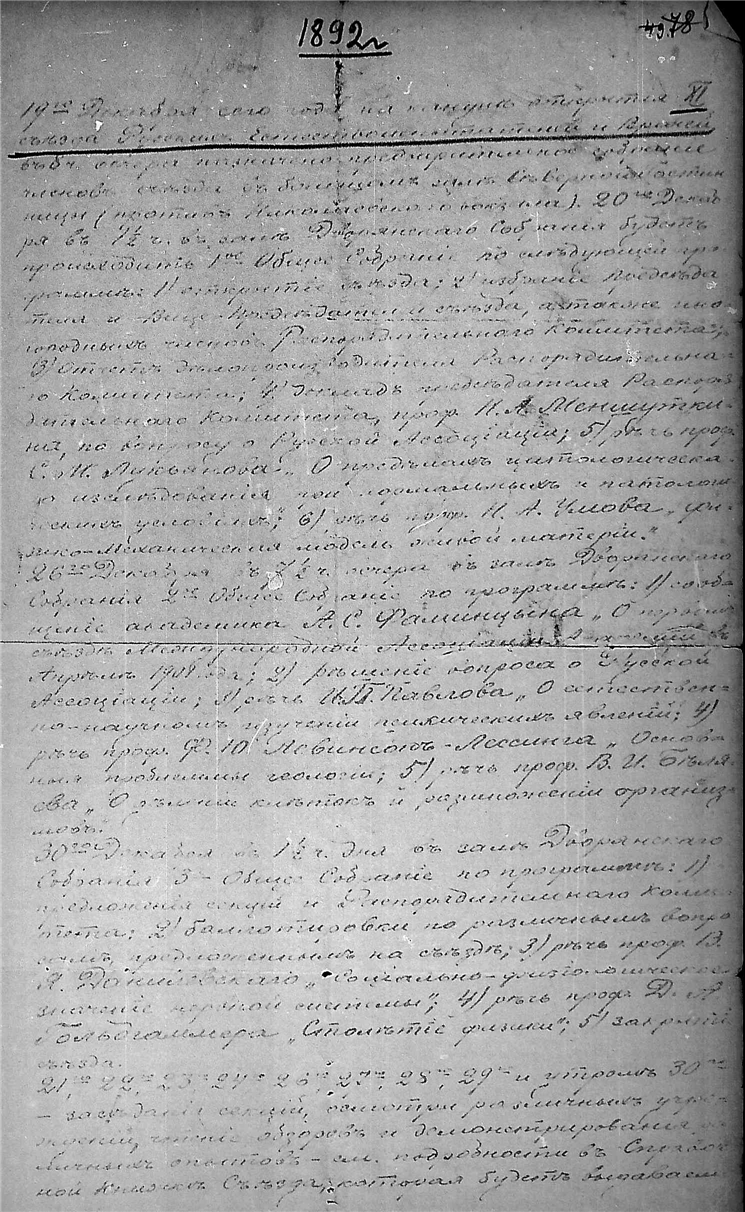 1892 г
49 78
19го Декабря сего года на канунѣ открытія XI
съѣзда Русскихъ Естествоиспытателей и Врачей
въ 8 ч. вечера назначено предварительное собраніе
членовъ съѣзда въ большомъ залѣ Сѣверной гости
ницы (противъ Николаевского вокзала). 20го Декаб
ря въ 7½ ч. въ залѣ Дворянскаго Собранія будетъ
происходить 1ое Общее Собраніе по слѣдующей про
граммѣ: 1) открытіе съѣзда; 2) избраніе предсѣда
теля и Вице-Предсѣдателя съѣзда, а также ино
городныхъ членовъ Распорядительнаго Комитета;
3) Отчетъ дѣлопроизводителя Распорядительна
го Комитета; 4) докладъ предсѣдателя Распоря
дительнаго Комитета, проф. Н. А. Меншутки
на, по вопросу о Русской Ассоціаціи; 5) рѣчь проф.
С. М. Лукьянова „О предѣлахъ цитологическа
го изслѣдованія при нормальныхъ и патологи
ческихъ условіяхъ"; 6) рѣчь проф. Н. А. Умова „Фи
зико-Механическая модель живой матеріи."
26го Декабря въ 7½ ч. вечера въ залѣ Дворянскаго
Собранія 2ое Общее Собраніе по программѣ: 1) сооб
щеніе академика А. С. Фаминцына „О первомъ
съѣздѣ Международной Ассоціаціи Академій въ
Апрѣлѣ 1901 года; 2) рѣшеніе вопроса о Русской
Ассоціаціи; 3) рѣчь И. П. Павлова „О естествен-
но-научномъ изученіи психическихъ явленій; 4)
рѣчь проф. Ф. Ю. Левинсонъ-Лессинга „Основ
ныя проблеммы геологіи; 5) рѣчь проф. В. И. Бѣля
ева „О дѣленіи клѣтокъ и размноженіи организ
мовъ.
30го Декабря въ 1½ ч. дня въ залѣ Дворянскаго
Собранія 3е Общее Собраніе по программѣ: 1)
предложенія секцій и Распорядительнаго Коми
тета; 2) баллотировки по различнымъ вопро
самъ, предложеннымъ на съѣздѣ; 3) рѣчь проф. В.
Я. Данилевскаго „Соціально-физіологическое
значеніе нервной системы"; 4) рѣчь проф. Д. А
Гольдгаммера „Столѣтіе физики"; 5) закрытіе
съѣзда.
21, 22, 23 24 26, 27, 28, 29 и утромъ 30го
– засѣданія секцій, осмотры различныхъ учре
жденій, чтеніе обзоровъ и демонстрированія
личныхъ опытовъ – см. подробности въ Справоч
ной Книжкѣ Съѣзда, которая будетъ выдаваем